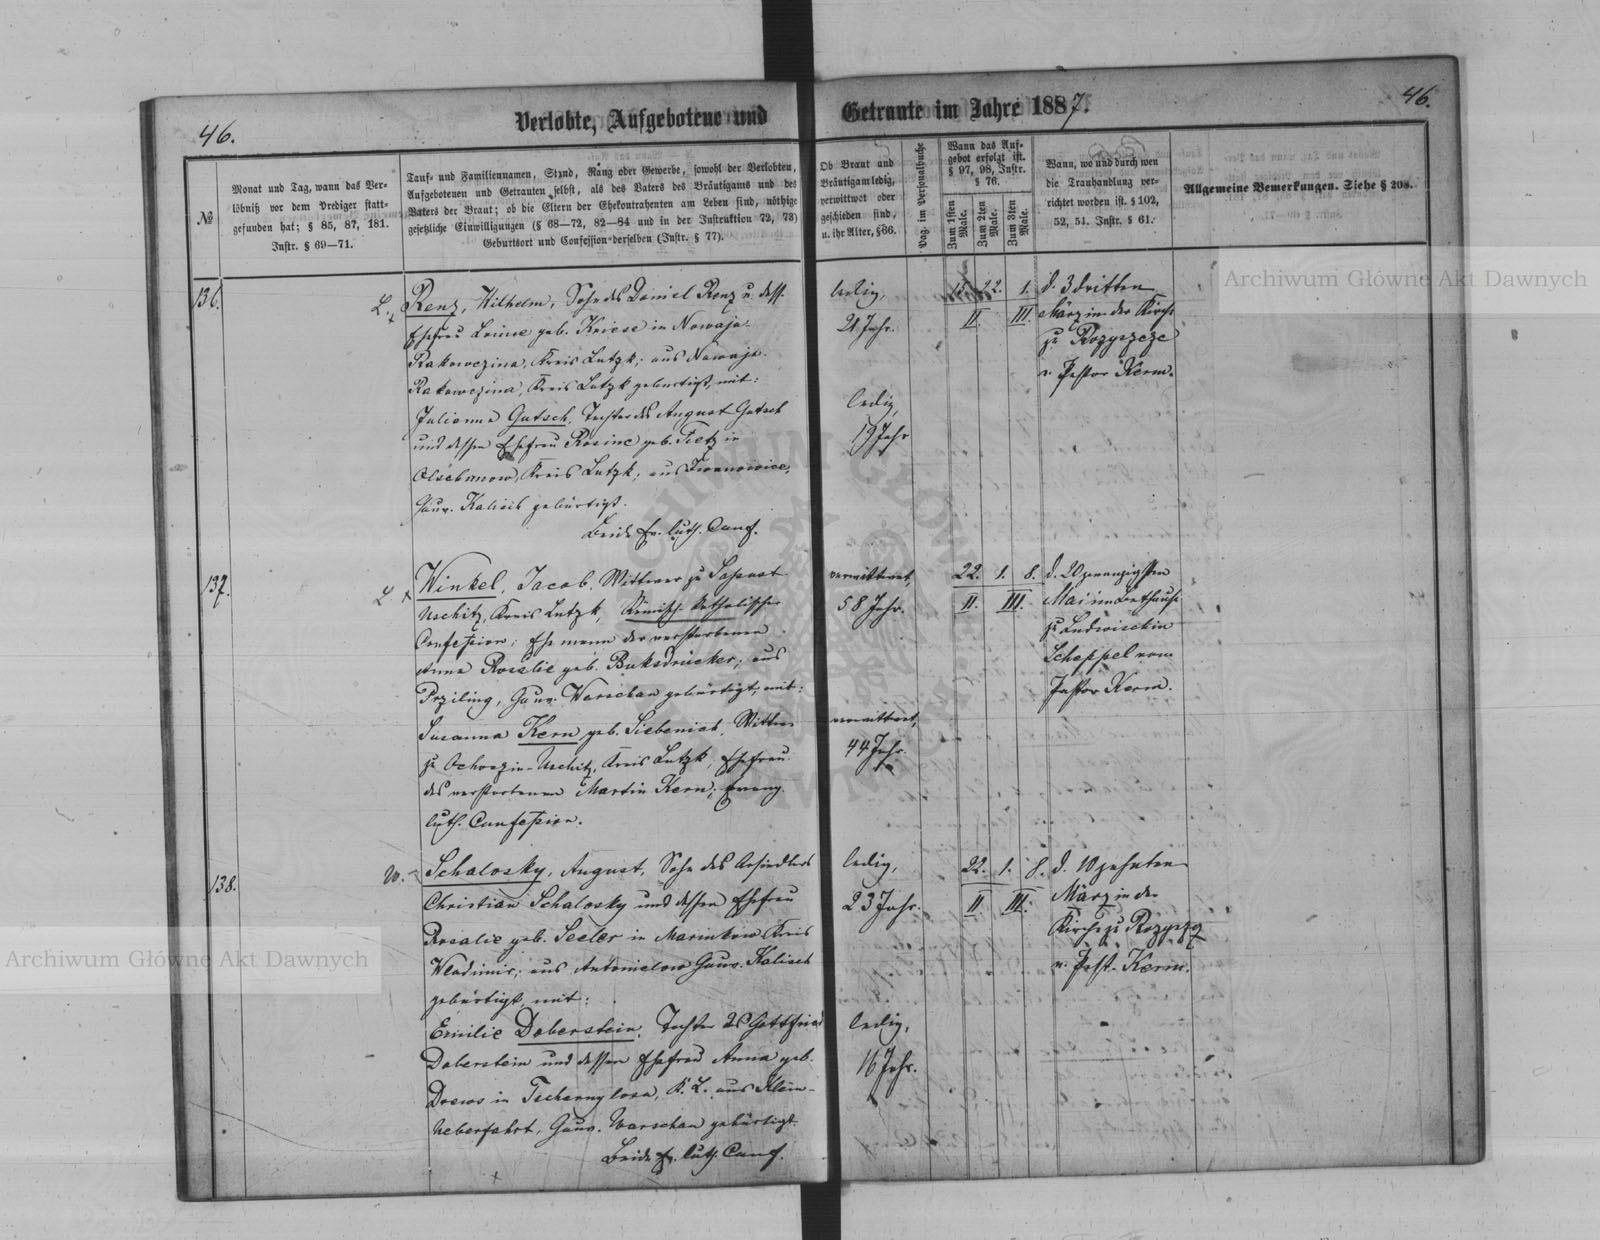 46.
Verlobte, Aufgebotene und
Getraute im Jahre 1887.
46.
№
Monat und Tag, wann das Ver-
löbniß vor dem Prediger statt-
gefunden hat; § 85, 87, 181.
Instr. § 69—71.
Tauf- und Familiennamen, Stand, Rang oder Gewerbe, sowohl der Verlobten,
Aufgebotenen und Getrauten selbst, als des Vaters des Bräutigams und des
Vaters der Braut; ob die Eltern der Ehekontrahenten am Leben sind, nöthige
gesetzliche Einwilligungen (§ 68—72, 82—84 und in der Instruktion 72, 73)
Geburtsort und Confession derselben (Instr. § 77).
Ob Braut und
Bräutigam ledig,
verwittwet oder
geschieden sind,
u. ihr Alter, § 66.
Pag. im Personalbuche
Wann das Auf-
gebot erfolgt ist.
§ 97, 98, Instr.
§ 76.
Zum 1sten Male.
Zum 2ten Male.
Zum 3ten Male.
Wann, wo und durch wen
die Trauhandlung ver-
richtet worden ist. § 102,
52, 51. Instr. § 61.
Allgemeine Bemerkungen. Siehe § 208.
136.
L.
Renz, Wilhelm, Sohn des Daniel Renz u. dess.
Ehefrau Louise geb. Kriese in Nowaja-
Rakowczina, Kreis Lutzk; aus Nowaja-
Rakowczina, Kreis Lutzk gebürtigt, mit:
Julianna Gutsch, Tochter des August Gutsch
und dessen Ehefrau Rosine geb. Tietz in
Kreis Lutzk; aus Iwanowice,
Gouv. Kalisch gebürtigt.
Beide Ev. luth. Conf.
ledig,
21 Jahr.
ledig,
19 Jahr
15. 22. 1.
II. III.
d. 3 dritten
März in der Kirche
zu Rozyszcze
v. Pastor Kerm.
137.
L
Winkel, Jacob, Wittwer zu
Uschitz, Kreis Lutzk, Römisch-katholischer
Confession; Ehemann der verstorbenen
Anna Rosalie geb. Buksdrücker; aus
Gouv. Warschau gebürtigt, mit:
Susanna Kern geb. Wittwe
zu Uschitz, Kreis Lutzk, Ehefrau
des verstorbenen Martin Kern; evang.
luth. Confession.
verwittwet,
58 Jahr.
verwittwet,
44 Jahr.
22. 1. 8.
II. III.
d. 20 zwanzigsten
Mai im Bethause
zu Ludwischin
Scheppel vom
Pastor Kerm.
138.
W.
Schalosky, August, Sohn des Ansiedlers
Christian Schalosky und dessen Ehefrau
Rosalie geb. Seeler in Marinkow Kreis
Wladimir; aus Antonielow Gouv. Kalisch
gebürtigt, mit:
Emilie Daberstein, Tochter des Gottfried
Daberstein und dessen Ehefrau Anna geb.
Drews in K. L. aus Klein-
Ueberfahrt, Gouv. Warschau gebürtigt.
Beide Ev. luth. Conf.
ledig,
23 Jahr.
ledig,
16 Jahr.
22. 1. 8.
II III.
d. 10 zehnten
März in der
Kirche zu Rozyszcz
v. Past. Kerm.
Archiwum Główne Akt Dawnych
Archiwum Główne Akt Dawnych